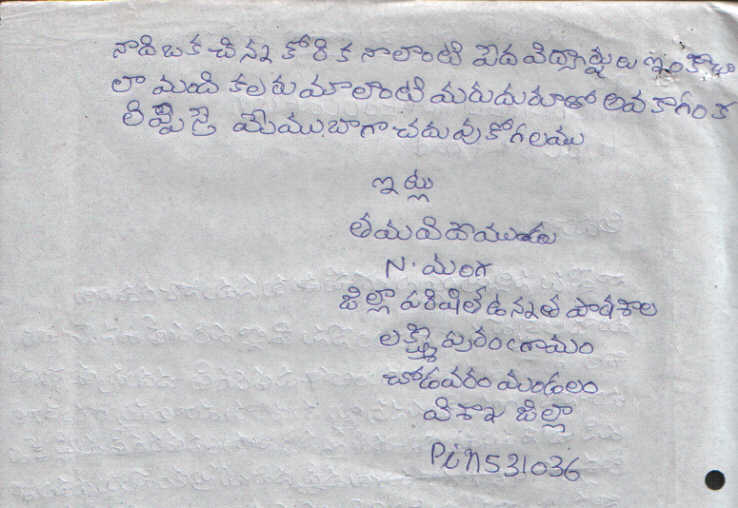 నాది ఒక చిన్న కోరిక నాలాంటి పేద విద్యార్థులు ఇంకా చా
లా మంది కలరు మాలాంటి మరుదురూతో అవకాశం క
లిప్పిస్తె మేము బాగా చదువుకోగలము
ఇట్లు
తమ విదాయుడు
N. మంగ
జిల్లా పరిషిలేడన్నత పాఠశాల
లక్ష్మీపురం గ్రామం
చోడవరం మండలం
విశాఖ జిల్లా
Pin 531036